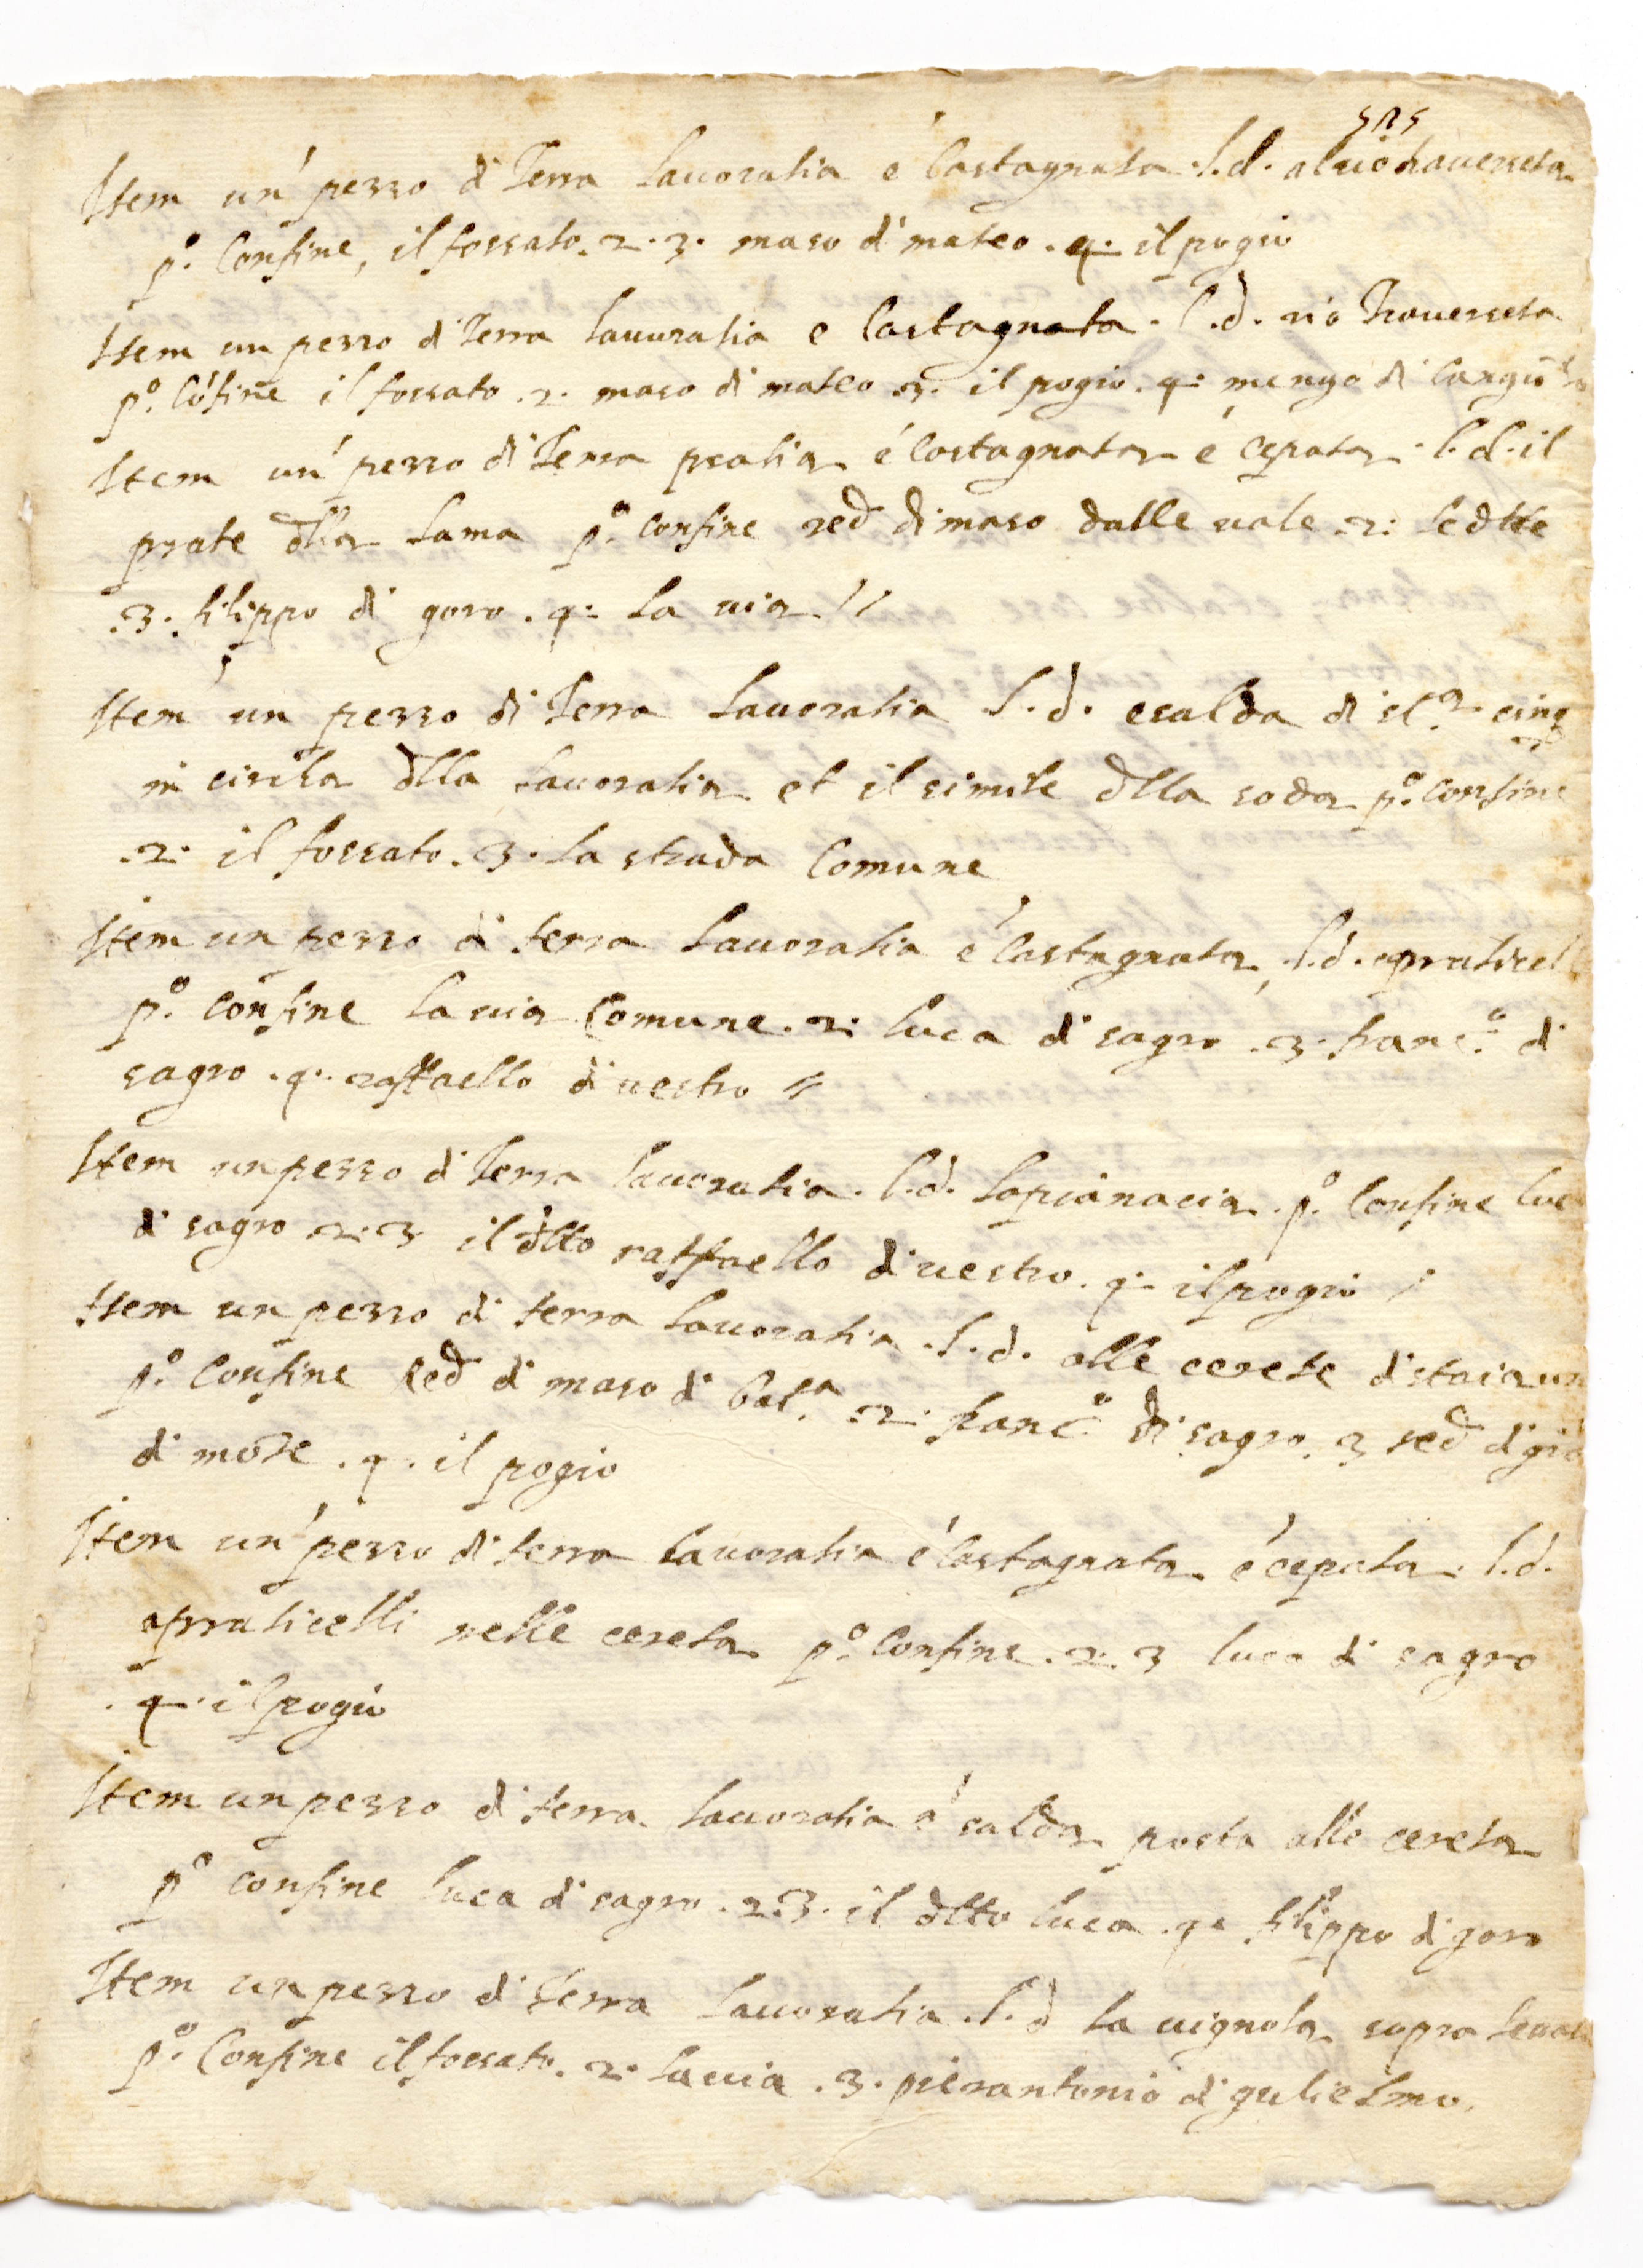 Item un' pezzo di Terra Lauoratia e' Castagnata .l.d. al rio trauerseta
p.º Confine, il fossato. 2. 3. maso di mateo . 4. il pogio
Item un pezzo di Terra Lauoratia e Castagnata . l.d. rio Trauerseta
p.º Cōfine il fossato .2. maso di mateo .3. il pogio. 4. mengo di
Item un' pezzo di Terra pratia e' Castagnata e' cepata . l.d. il
prate dlla Lama p.º confine red di maso dalle uale .2. le dtte
.3. filippo di goro . 4. La uia //
Item un pezzo di Terra Lauoratia l.d. esalda di st.ª cinq
in circha dlla Lauoratia et il simile dlla soda p.º Confine
.2. il fossato .3. La strada Comune
Item un pezzo di terra Lauoratia e' Castagnata, l.d. apraticel
p.º Confine La uia Comune .2. luca di sagro .3. franc.º di
sagro .4. raffaello di uestro //
Item un pezzo di Terra Lauoratia . l.d. Lapianacia . p.º Confine luc
di sagro .2.3 il dtto raffaello di uestro . 4. il pogio /
Item un pezzo di terra Lauoratia .l.d. alle cerete di staia un
p.º Confine red di maso di bat.ª .2. franc.º di sagro. 3 red di gio
di mōte . 4. il pogio
Item un' pezzo di terra Lauoratia e' Castagnata e' cepata . l.d.
apraticelli nelle cereta p.º Confine .2.3 luca di sagro
. 4. il pogio
Item un pezzo di terra Lauoratia e' salda posta alle cereta
p.º confine luca di sagro .2.3. il dtto luca .4. filippo di goro
Item un pezzo di Terra Lauoratia .l.d La uignola sopra
p.º Confine il fossato .2. La uia .3. pierantonio di gulielmo.